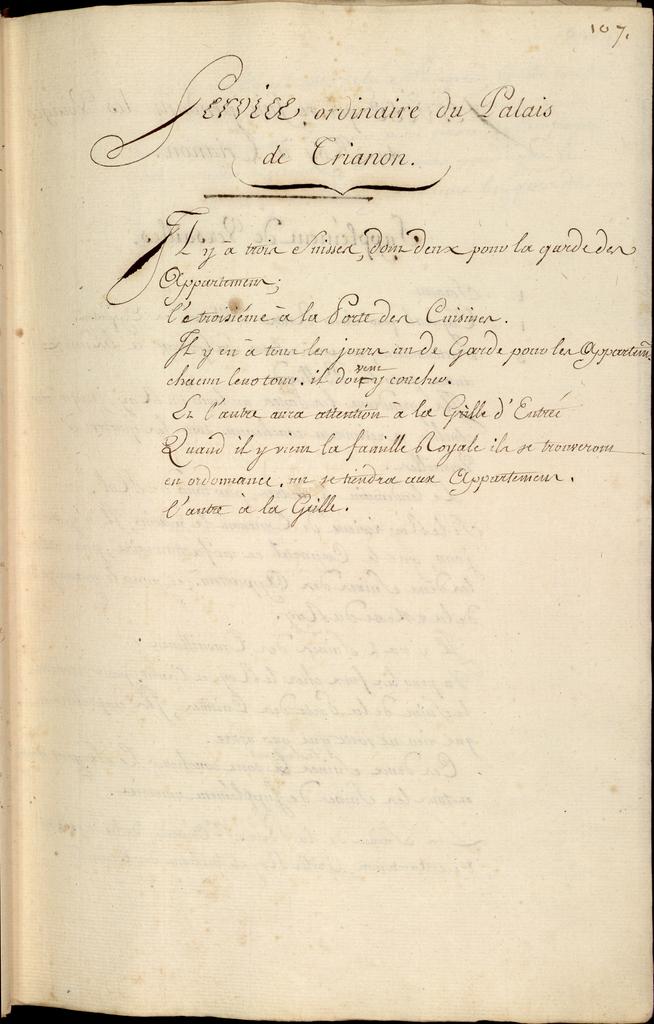 107.
Service ordinaire du Palais
de Trianon.
Il y à trois Suisses, dont deux pour la garde des
Appartemens;
le troisiéme à la Porte des Cuisines.
Il y en à tous les jours un de Garde pour les Appartem.
chacun leur tour. il doivent y coucher.
Et l'autre aura attention à la Grille d'Entrée
Quand il y vient la famille Royale ils se trouveront
en ordonnance. un se tiendra aux Appartemens.
l'autre à la Grille.